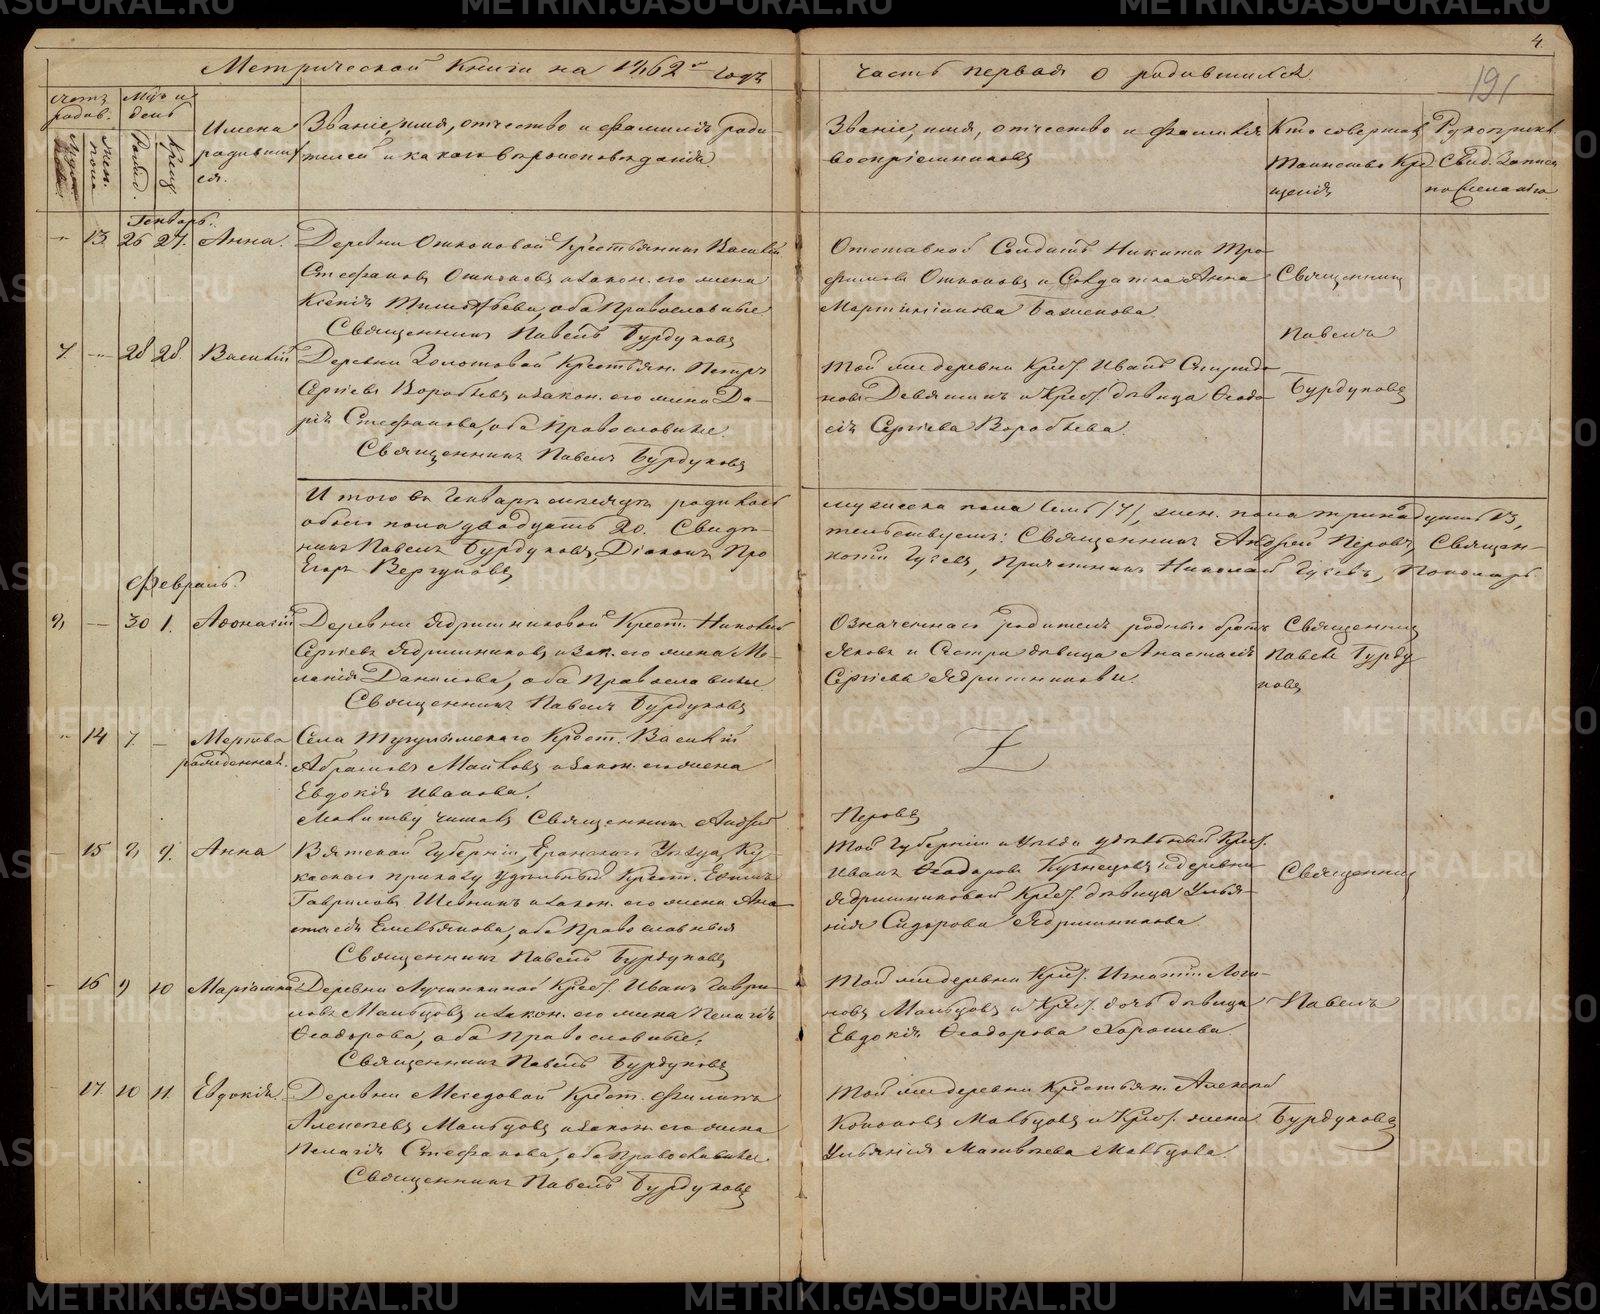 Метрической книги на 1862й годъ
часть первая о родившихся
4
191
Счетъ родив.
Муж. пола
Жен. пола
Мѣс. и день
Рожд.
Крещ.
Имена родившихся.
Званіе, имя, отчество и фамилія роди-
телей и какого вѣроисповѣданія
Званіе, имя, отчество и фамилія
воспріемниковъ
Кто совершалъ
Таинство Кре
щенія
Рукоприкл.
Свид. записи
по желанію
Генварь.
13. 26 27. Анна.
Деревни Ошкоковой Крестьянинъ Василій
Стефановъ Ошкоковъ и закон. его жена
Ксенія, оба Православные
Священникъ Павелъ Бурдуковъ
Отставной Солдатъ Никита Тро
фимовъ Ошкоковъ и Солдатка Анна
Мартиніанова Баженова
Священникъ
Павелъ
Бурдуковъ
7. — 28 28. Василій
Деревни Золотовой Крестьян. Петръ
Сергіевъ Воробьевъ и закон. его жена Да-
рія Стефанова, оба Православные.
Священникъ Павелъ Бурдуковъ
Той же деревни Крес. Иванъ Спиридо
новъ Девяшинъ и Крес. дѣвица Ѳеодо
сія Сергіева Воробьева.
Итого въ Генварѣ мѣсяцѣ родилось
обоего пола двадцать 20. Свидѣ-
никъ Павелъ Бурдуковъ, Діаконъ Про
Егоръ Вергуновъ
мужеска пола семь /7/, жен. пола тринадцать 13,
тельствуемъ: Священникъ Андрей Перовъ, Священ-
копій Гусевъ, Причетникъ Николай Гусевъ, Пономарь
Февраль.
8, — 30 1. Аѳанасій
Деревни Ядришниковой Крест. Николай
Сергіевъ Ядришниковъ и зак. его жена Ме-
ланія Данилова, оба Православные
Священникъ Павелъ Бурдуковъ
Означеннаго родителя родный братъ
Яковъ и Сестра дѣвица Анастасія
Сергіевы Ядришниковы.
Священникъ
Павелъ Бурду
ковъ
14 7. — Мертво
рожденная.
Села Тугулымскаго Крест. Василій
Абрамовъ Мальковъ и закон. его жена
Евдокія Иванова.
Молитву читалъ Священникъ Андрей
Перовъ
15 8, 9. Анна
Вятской Губерніи, Еранскаго Уѣзда, Ку-
каскаго приказу удѣльный Крест. Евтихъ
Гавриловъ Шевнинъ и закон. его жена Ана
стасія Емельянова, оба Православныя
Священникъ Павелъ Бурдуковъ
Той Губерніи и Уѣзда удѣльный Крес.
Иванъ Ѳеодоровъ Кузнецовъ и деревни
Ядришниковой Крес. дѣвица Улья-
нія Сидорова Ядришникова
Священникъ
16 9 10 Маріамна
Деревни Лучинкиной Крес. Иванъ Гаври-
ловъ Мальцовъ и закон. его жена Пелагія
Ѳеодорова, оба Православные.
Священникъ Павелъ Бурдуковъ
Той же деревни Крес. Игнатій Логи-
новъ Мальцовъ и Крес. дочь дѣвица
Евдокія Ѳеодорова Хорошева
Павелъ
17. 10 11. Евдокія.
Деревни Меседовой Крест. Филиппъ
Алексѣевъ Мальцовъ и закон. его жена
Пелагія Стефанова, оба Православные.
Священникъ Павелъ Бурдуковъ
Той же деревни Крестьян. Алексѣй
Кононовъ Мальцовъ и Крес. жена
Ульянія Матвѣева Мальцова.
Бурдуковъ
METRIKI.GASO-URAL.RU